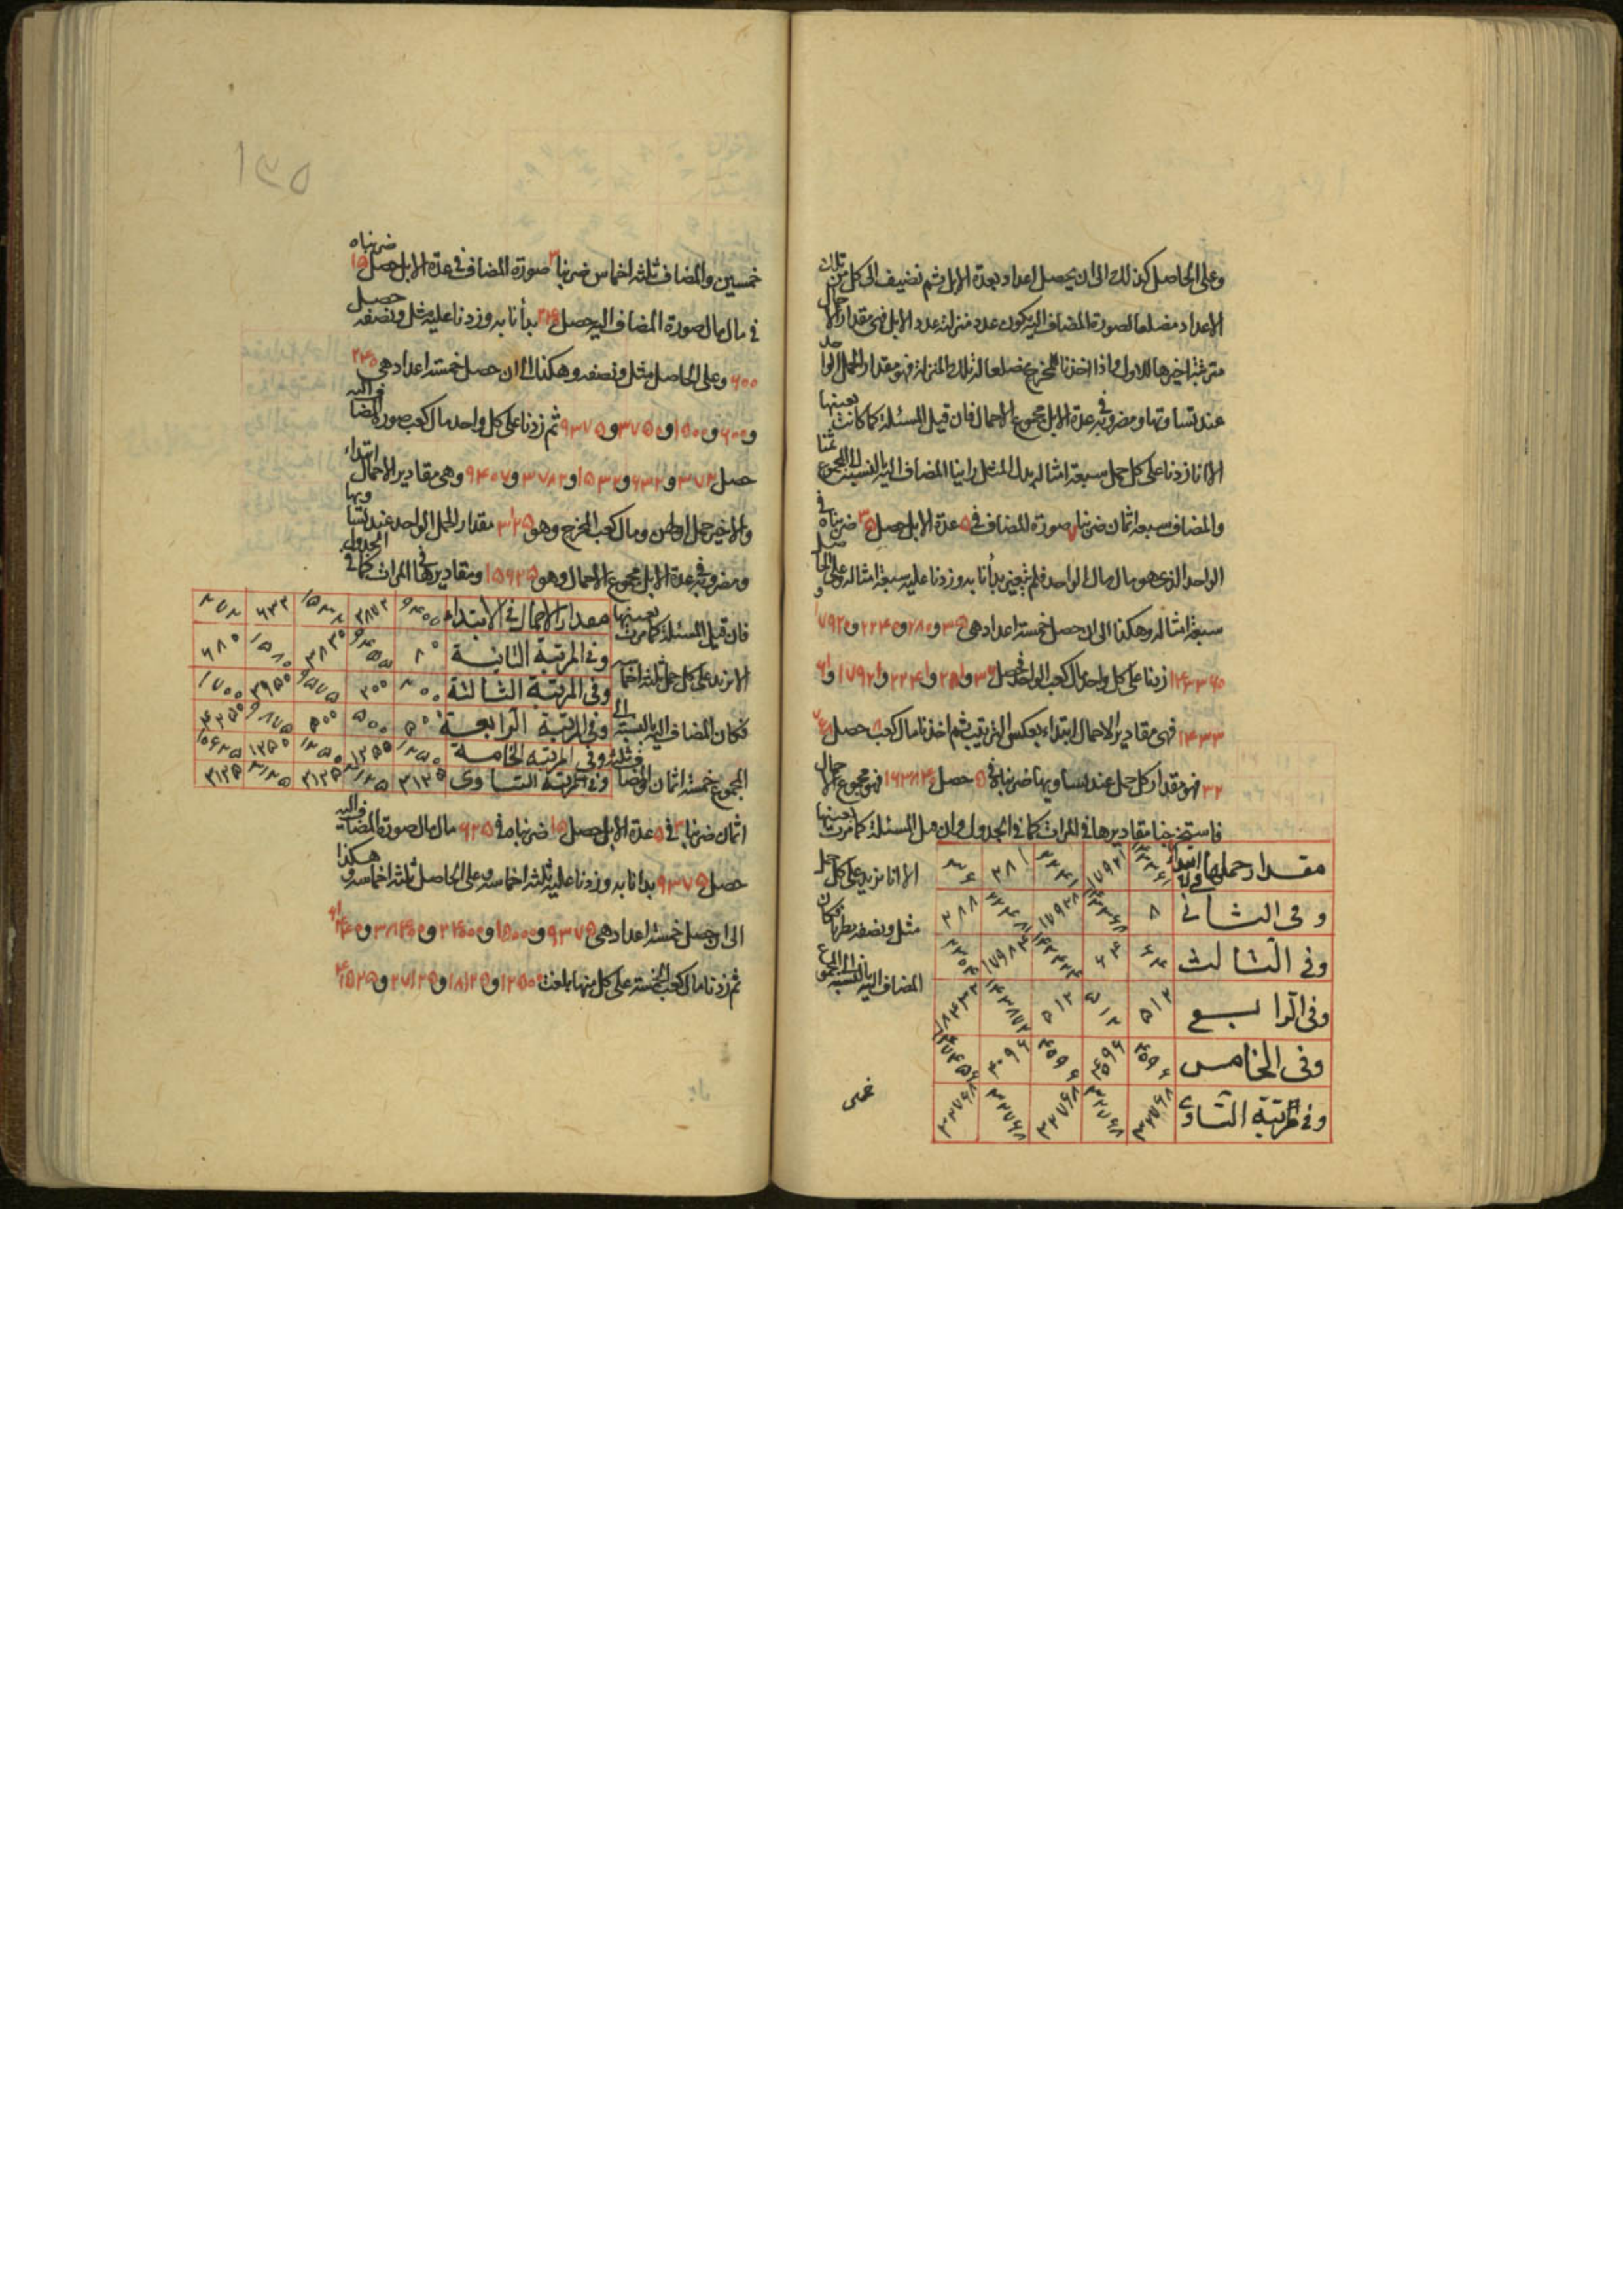 وعلى الحاصل كذلك الى ان يحصل اعداد بعدة الابل ثم نضيف الى كل من تلك
الاعداد مضلعا لصورة المضاف اليه يكون عدد منزلته عدد الابل فهى مقدار الاحمال
مترتبة اخيرها للاول واذا اخذنا للمخرج مضلعا لذلك المنزلة فهو مقدار الحمل الواحد
عند تساوتها ومضروبه فى عدة الابل مجموع الاحمال فان قيل المسئلة كما كانت بعينها
الا انا زدنا على كل حمل سبعة امثاله بدل المثل راينا المضاف اليه بالنسبة الى المجموع ثمنا
والمضاف سبعة اثمان ضربنا ٧ صورة المضاف فى ٥ عدة الابل حصل ٣٥ ضربناه فى
الواحد الذى هو مال مال الواحد فلم يتغير بدأنا به وزدنا عليه سبعة امثاله وعلى الحاصل
سبعة امثاله وهكذا الى ان حصل خمسة اعداد هى ٣٥ و ٢٨٠ و ٢٢٤٠ و ١٧٩٢٠ و
١٤٣٣٦٠ زدنا على كل واحد مال كعب الواحد فحصل ٣٦ و ٢٨١ و ٢٢٤١ و ١٧٩٢١ و
فهى مقادير الاحمال ابتداء بعكس الترتيب ثم اخذنا مال كعب ٨ حصل
فهو مقدار كل حمل عند تساويها ضربناه فى ٥ حصل ١٦٣٨٤٠ فهو مجموع الاحمال
فاستخرجنا مقاديرها فى المراتب كما فى الجدول وان قيل المسئلة كما مرت بعينها
الا انا نزيد على كل حمل
مثل ونصفه نظرنا فكان
المضاف اليه بالنسبة الى المجموع
مقدار حملها ابتداء
وفى الثانى ٨ ١٧٩٢٨ ٢٨٨
وفى الثالث ٦٤ ٦٤ ١٧٩٨٤
وفى الرابع ٥١٢ ٥١٢ ٥١٢ ١٨٤٣٢
وفى الخامس ٤٠٩٦ ٤٠٩٦ ٤٠٩٦ ٤٠٩٦
وفى مرتبة التساوى ٣٢٧٦٨ ٣٢٧٦٨ ٣٢٧٦٨ ٣٢٧٦٨ ٣٢٧٦٨
خمسين
١٣٥
خمسين والمضاف ثلثة اخماس ضربنا ٣ صورة المضاف فى عدة الابل حصل ١٥ ضربناه
فى مال مال صورة المضاف اليه حصل بدأنا به وزدنا عليه مثل ونصفه حصل
٦٠٠ وعلى الحاصل مثل ونصفه وهكذا الى ان حصل خمسة اعداد هى ٢٤٠
و ٦٠٠ و ١٥٠٠ و ٣٧٥٠ و ٩٣٧٥ ثم زدنا على كل واحد مال كعب صورة المضاف اليه
حصل ٢٧٢ و ٦٣٢ و ١٥٣٢ و ٣٧٨٢ و ٩٤٠٧ وهى مقادير الاحمال ابتداء
والاخير حمل اولهن ومال كعب المخرج وهو ٣١٢٥ مقدار الحمل الواحد عند تساويها
ومضروبه فى عدة الابل مجموع الاحمال وهو ١٥٦٢٥ ومقاديرها فى المراتب كما فى الجدول
فان قيل المسئلة كما مرت بعينها
الا نزيد على كل حمل ثلثة اخماسه
فكان المضاف اليه بالنسبة الى
المجموع خمسة اثمان والمضاف ثلثة
مقدار الاحمال فى الابتداء ٦٣٢ ٢٧٢
وفى المرتبة الثانية ٨٠ ١٥٨٠ ٦٨٠
وفى المرتبة الثالثة ٢٠٠ ٢٠٠ ٩٥٧٥ ٣٩٥٠ ١٧٠٠
وفى المرتبة الرابعة ٥٠٠ ٥٠٠ ٥٠٠ ٩٨٧٥ ٤٢٥٠
وفى المرتبة الخامسة ١٢٥٠ ١٢٥٠ ١٢٥٠ ١٢٥٠ ١٠٦٢٥
وفى مرتبة التساوى ٣١٢٥ ٣١٢٥ ٣١٢٥ ٣١٢٥ ٣١٢٥
اثمان ضربنا ٣ فى ٥ عدة الابل حصل ١٥ ضربناه فى ٦٢٥ مال مال صورة المضاف اليه
حصل ٩٣٧٥ بدانا به وزدنا عليه ثلثة اخماسه وعلى الحاصل ثلثة اخماسه وهكذا
الى ان حصل خمسة اعداد هى ٩٣٧٥ و ١٥٠٠٠ و ٢٤٠٠٠ و ٣٨٤٠٠ و
ثم زدنا مال كعب الخمسة على كل منها بلغت ١٢٥٠٠ و ١٨١٢٥ و ٢٧١٢٥ و